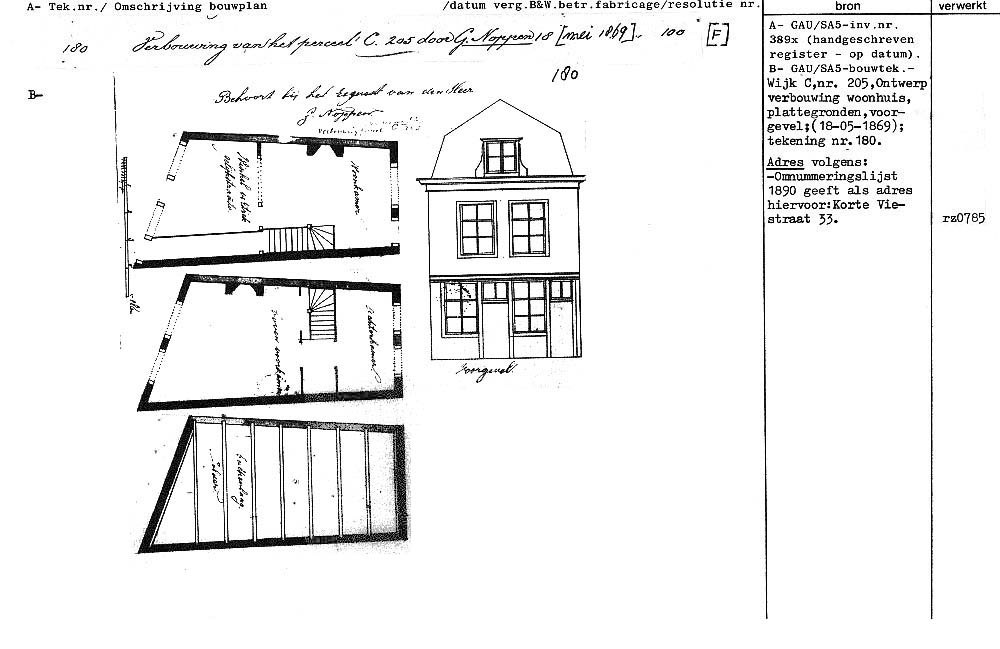 A- Tek.nr./ Omschrijving bouwplan /datum verg.B&W.betr.fabricage/resolutie nr.
bron
verwerkt
180 Verbouwing van het perceel C. 205 door G. Noppen 18 [mei 1869]. 100 [F]
180
B-
Behoort bij het request van den Heer
G. Noppen
Voorkamer
Achterkamer
Voorgevel.
A- GAU/SA5-inv.nr.
389x (handgeschreven
register - op datum).
B- GAU/SA5-bouwtek.-
Wijk C,nr. 205,Ontwerp
verbouwing woonhuis,
plattegronden,voor-
gevel;(18-05-1869);
tekening nr.180.
Adres volgens:
-Omnummeringslijst
1890 geeft als adres
hiervoor:Korte Vie-
straat 33.
rz0785